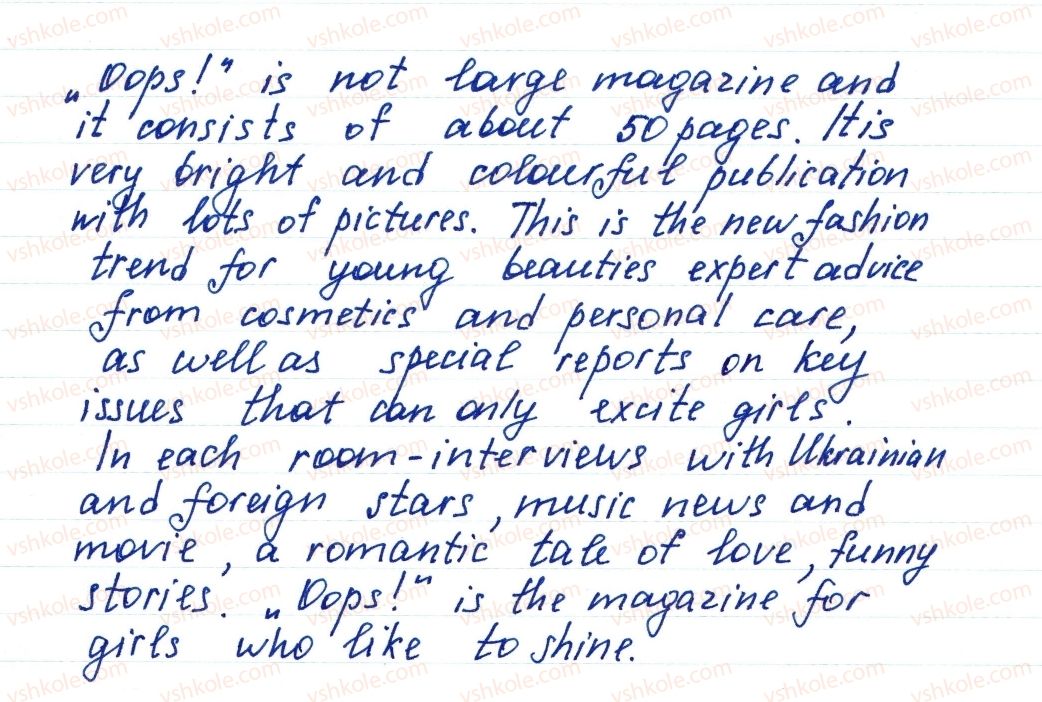 „Oops!" is not large magazine and
it consists of about 50 pages. It is
very bright and colourful publication
with lots of pictures. This is the new fashion
trend for young beauties expert advice
from cosmetics and personal care,
as well as special reports on key
issues that can only excite girls.
In each room-interviews with Ukrainian
and foreign stars, music news and
movie, a romantic tale of love, funny
stories. „Oops!" is the magazine for
girls who like to shine.